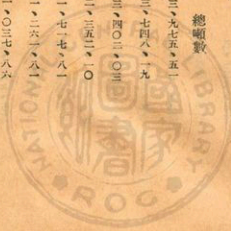 總噸數
三、九七五、五一
三、七四八、一九
三、四〇二、〇三
二、三五二、一〇
一、七一七、八一
一、二六一、八一
一、〇三七、八六
NATIONAL CENTRAL LIBRARY
ROC
國家圖書